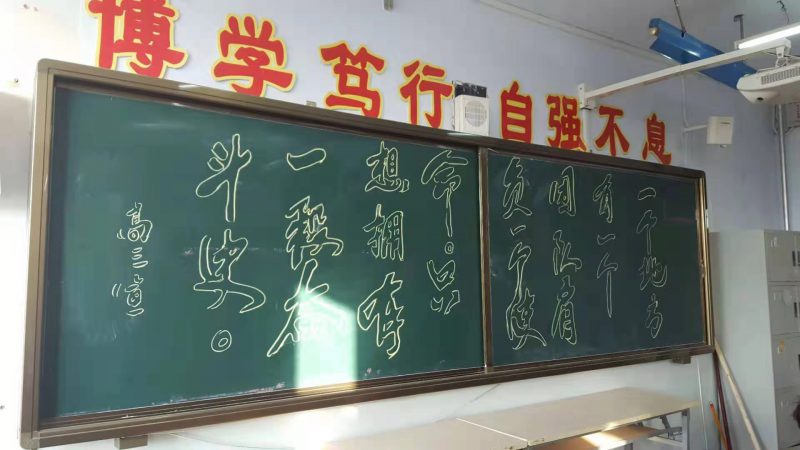 博学笃行 自强不息
一个地方
有一个
团队肩
负一个使
命。只
想拥有
一段奋
斗史。
高三